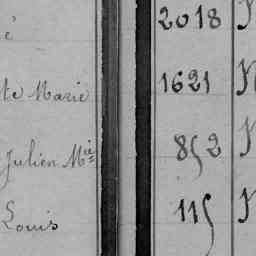 é 2018 N
te Marie 1621 N
Julien Mie 852 N
Louis 115 N